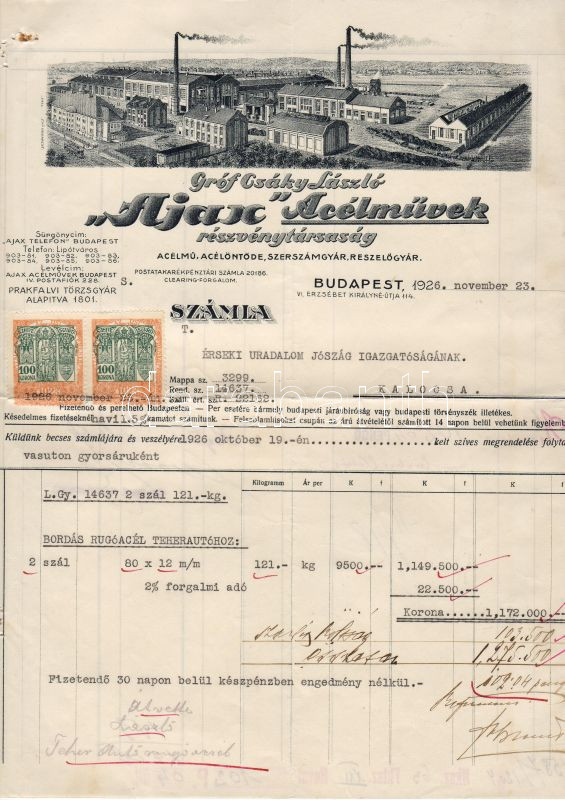 Gróf Csáky László
„Ajax" Acélművek
részvénytársaság
ACÉLMŰ, ACÉLÖNTÖDE, SZERSZÁMGYÁR, RESZELŐGYÁR.
Sürgönycim:
"AJAX TELEFON" BUDAPEST
Telefon: Lipótváros
903-81. 903-82. 903-83.
903-84. 903-85. 903-86.
Levélcim:
AJAX ACÉLMŰVEK BUDAPEST
IV. POSTAFIÓK 228.
PRAKFALVI TÖRZSGYÁR
ALAPITVA 1801.
POSTATAKARÉKPÉNZTÁRI SZÁMLA 20186.
CLEARING-FORGALOM.
S.
BUDAPEST, 1926. november 23.
VI. ERZSÉBET KIRÁLYNÉ-ÚTJA 114.
SZÁMLA
T.
100 KORONA
100 KORONA
ÉRSEKI URADALOM JÓSZÁG IGAZGATÓSÁGÁNAK.
Mappa sz. 3299.
Rend. sz. 14637.
KALOCSA.
Száll. ért. sz. Rt. 22152.
1926 november
Fizetendő és perelhető Budapesten — Per esetére bármely budapesti járásbiróság vagy budapesti törvényszék illetékes.
Késedelmes fizetéseknél havi 1.5% kamatot számitunk. — Felszólamlásokat csupán az árú átvételétől számitott 14 napon belül vehetünk figyelemb
Küldünk becses számlájára és veszélyére 1926 október 19.-én kelt szives megrendelése folytá
vasuton gyorsáruként
Kilogramm Ár per K f K f K f
L.Gy. 14637 2 szál 121.-kg.
BORDÁS RUGÓACÉL TEHERAUTÓHOZ:
2 szál 80 x 12 m/m 121.- kg 9500.-- 1,149.500.--
2% forgalmi adó 22.500.--
Korona......1,172.000.--
103.500
1,275.500
102.04
Fizetendő 30 napon belül készpénzben engedmény nélkül.-
Átvette
László